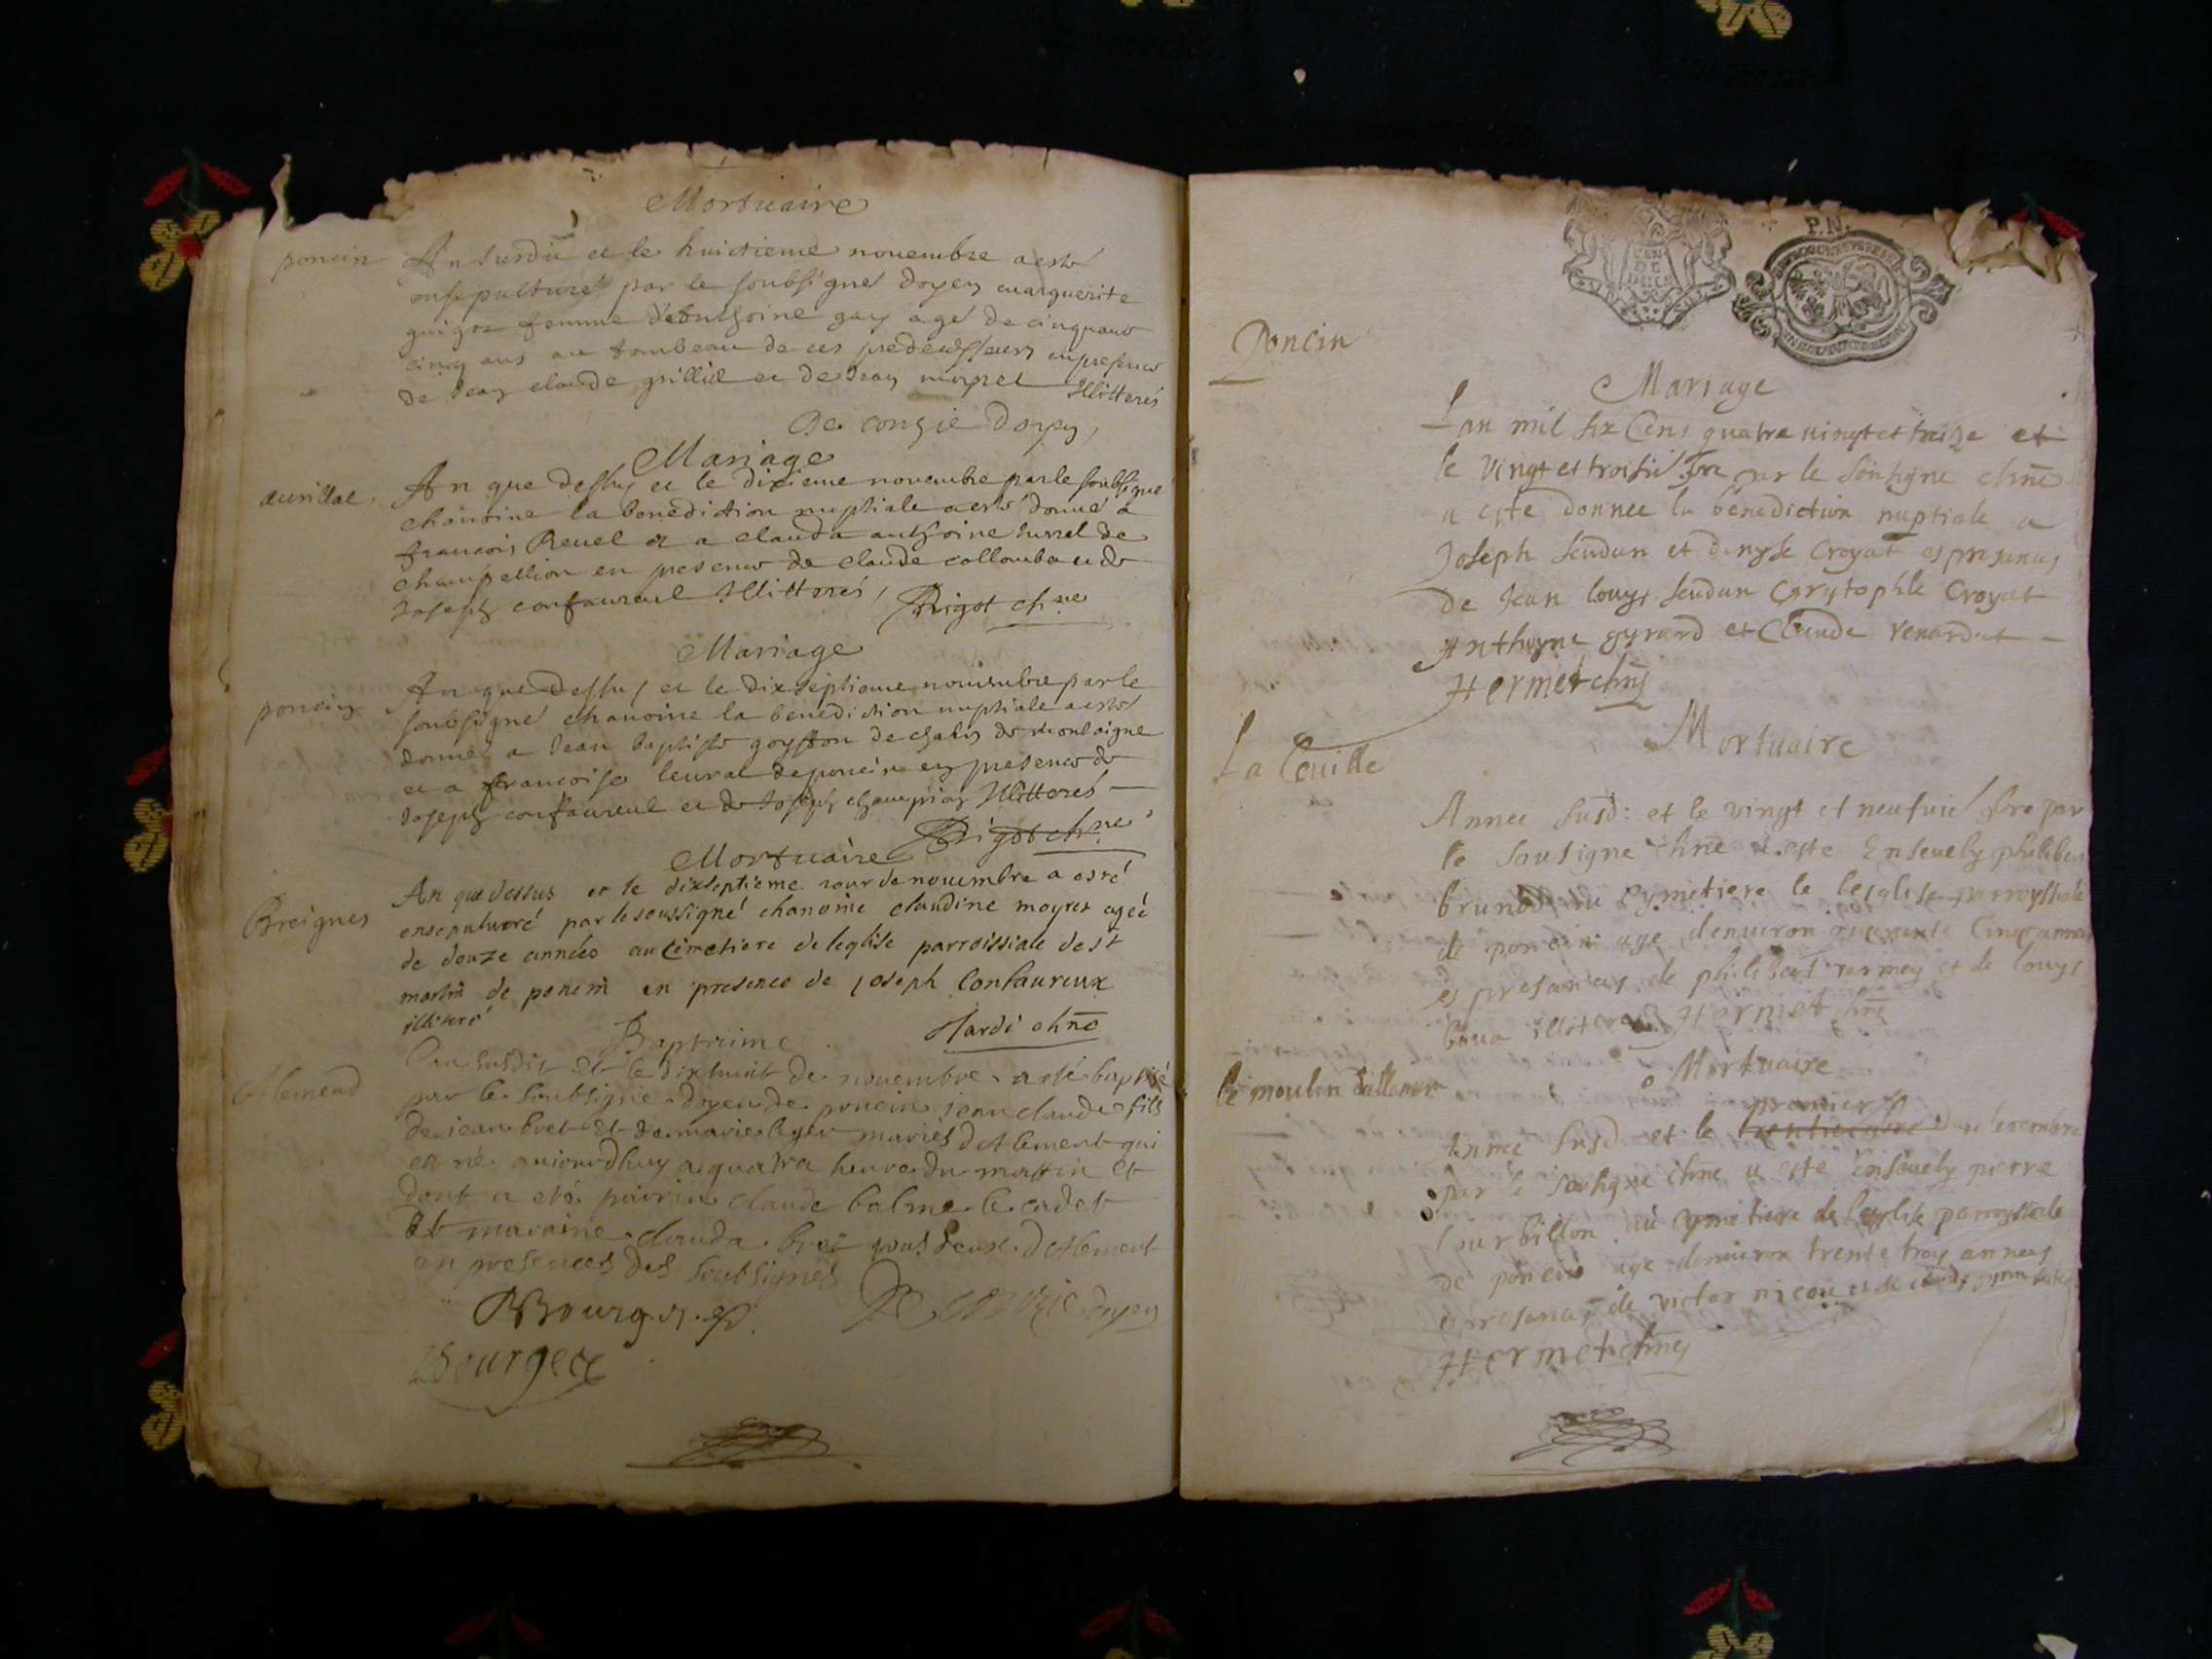 Mortuaire
poncin
An susdit et le huictieme novembre a esté
ensepulturé par le soubsigné doyen marguerite
guigoz femme d'Anthoine gay agé de cinquante
cinq ans au tombeau de ces predecesseurs en presence
de Jean claude grillié et de Jean Illitterés
De conzié doyen
Mariage
An que dessus et le dixieme novembre par le soubsigné
chanoine la benediction nuptiale a esté donné a
françois Revel et a clauda anthoine de
en presence de claude collomb et de
Joseph confaureul Illitterés, Rigot chne
Mariage
poncin
An que dessus et le dixseptieme novembre par le
soubsigné chanoine la benediction nuptiale a esté
donné a Jean baptiste goyffon de chalis de montaigne
et a françoise levrat de poncin en presence de
Joseph confaureul et de Joseph champion Illitterés
Rigot chne
Mortuaire
Breignes
An que dessus et le dixseptieme jour de novembre a esté
ensepulturé par le soussigné chanoine claudine moyret agée
de douze années au Cimetiere de leglise parroissiale de st
martin de poncin en presence de joseph Confaureux
illiteré
Hardi chne
Baptaime
L'an susdit et le dixhuit de novembre a esté baptisé
par le soubsigné doyen de poncin jean claude fils
de jean bret et de marie leger mariés d'Alement qui
est né aujourdhuy a quatre heure du mattin et
dont a eté pairin claude balme le cadet
et maraine clauda bret tous deux d'Alement
en presences des soubsignés
De conzié doyen
Bourgeex
P.N.
Poncin
Mariage
Lan mil six Cens quatre vingt et treize et
le vingt et troisie 9bre par le sousigne chne
a este donnee la benediction nuptiale a
Joseph seudan et denyse Croyat es presances
de Jean louys seudan Crystophle Croyat
Anthoyne gyrard et Claude renardat
Hermet chne
La Cuille
Mortuaire
Annee susd: et le vingt et neufvie 9bre par
le sousigne chne a este Ensevely philibert
brunod au cymetiere de lesglise parroyssiale
de poncin age denviron quarante Cinq annees
es presances de philibert et de louys
illiteres Hermet chne
Mortuaire
le moulin dallement
premier
Annee susd et le decembre
par le sousigne chne a este Ensevely pierre
tourbillon au cymetiere de lesglise parroyssiale
de poncin age denviron trente troys annees
es presances de victor nicou et de
Hermet chne